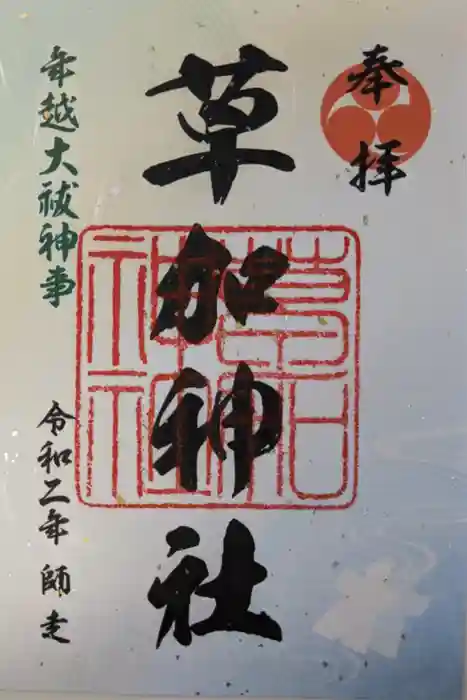 奉拝
草加神社
年越大祓神事
令和二年 師走
草加神社